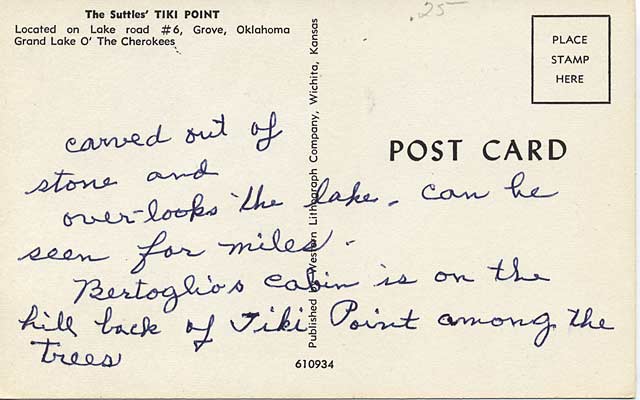 The Suttles' TIKI POINT
Located on Lake road #6, Grove, Oklahoma
Grand Lake O' The Cherokees
.25
PLACE
STAMP
HERE
Published by Western Lithograph Company, Wichita, Kansas
POST CARD
carved out of
stone and
over-looks the lake. can be
seen for miles.
Bertoglio's cabin is on the
hill back of Tiki Point among the
trees
610934